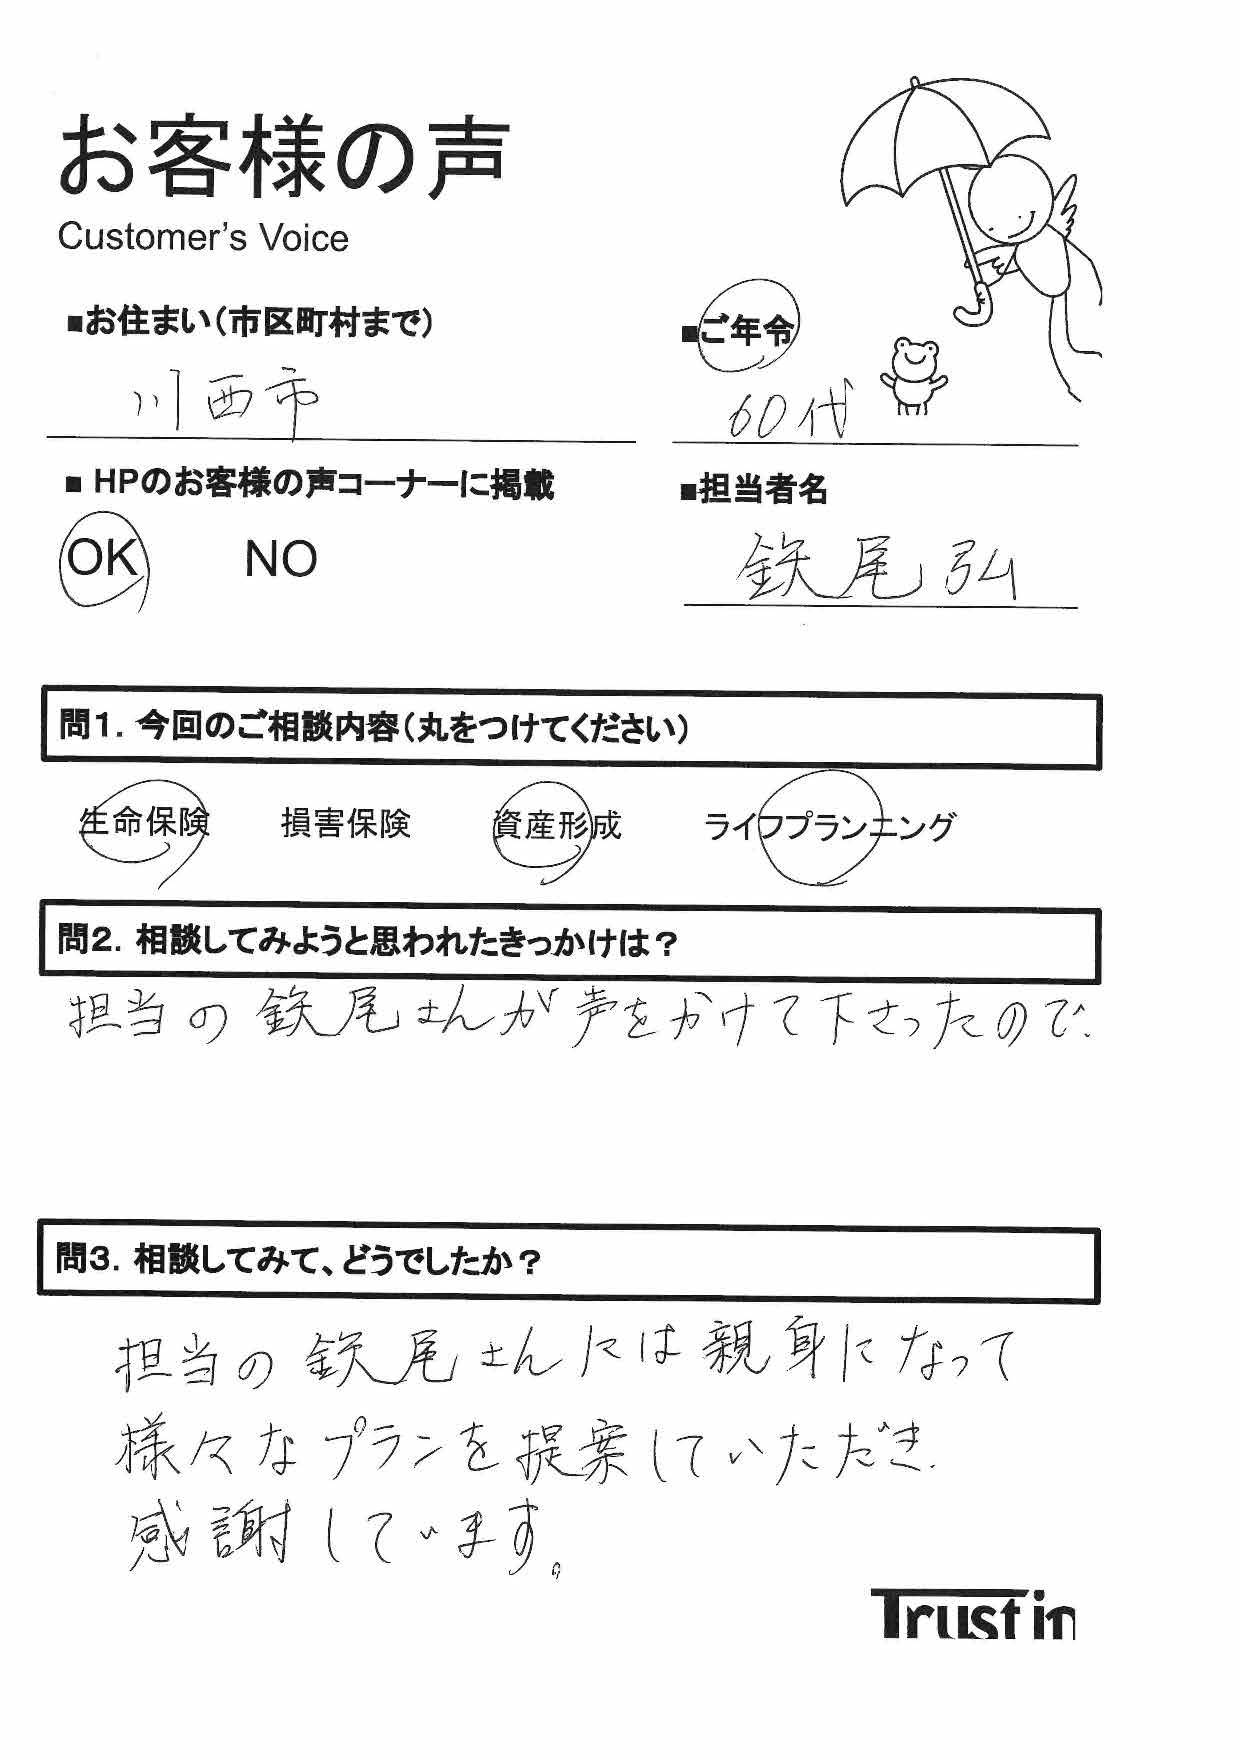 お客様の声
Customer's Voice
■お住まい(市区町村まで)
■ご年令
川西市
60代
■ HPのお客様の声コーナーに掲載
■担当者名
OK NO
鉃尾弘
問1. 今回のご相談内容(丸をつけてください)
生命保険 損害保険 資産形成 ライフプランニング
問2. 相談してみようと思われたきっかけは？
担当の鉃尾さんが声をかけて下さったので、
問3. 相談してみて、どうでしたか？
担当の鉃尾さんには親身になって
様々なプランを提案していただき、
感謝しています。
Trust in